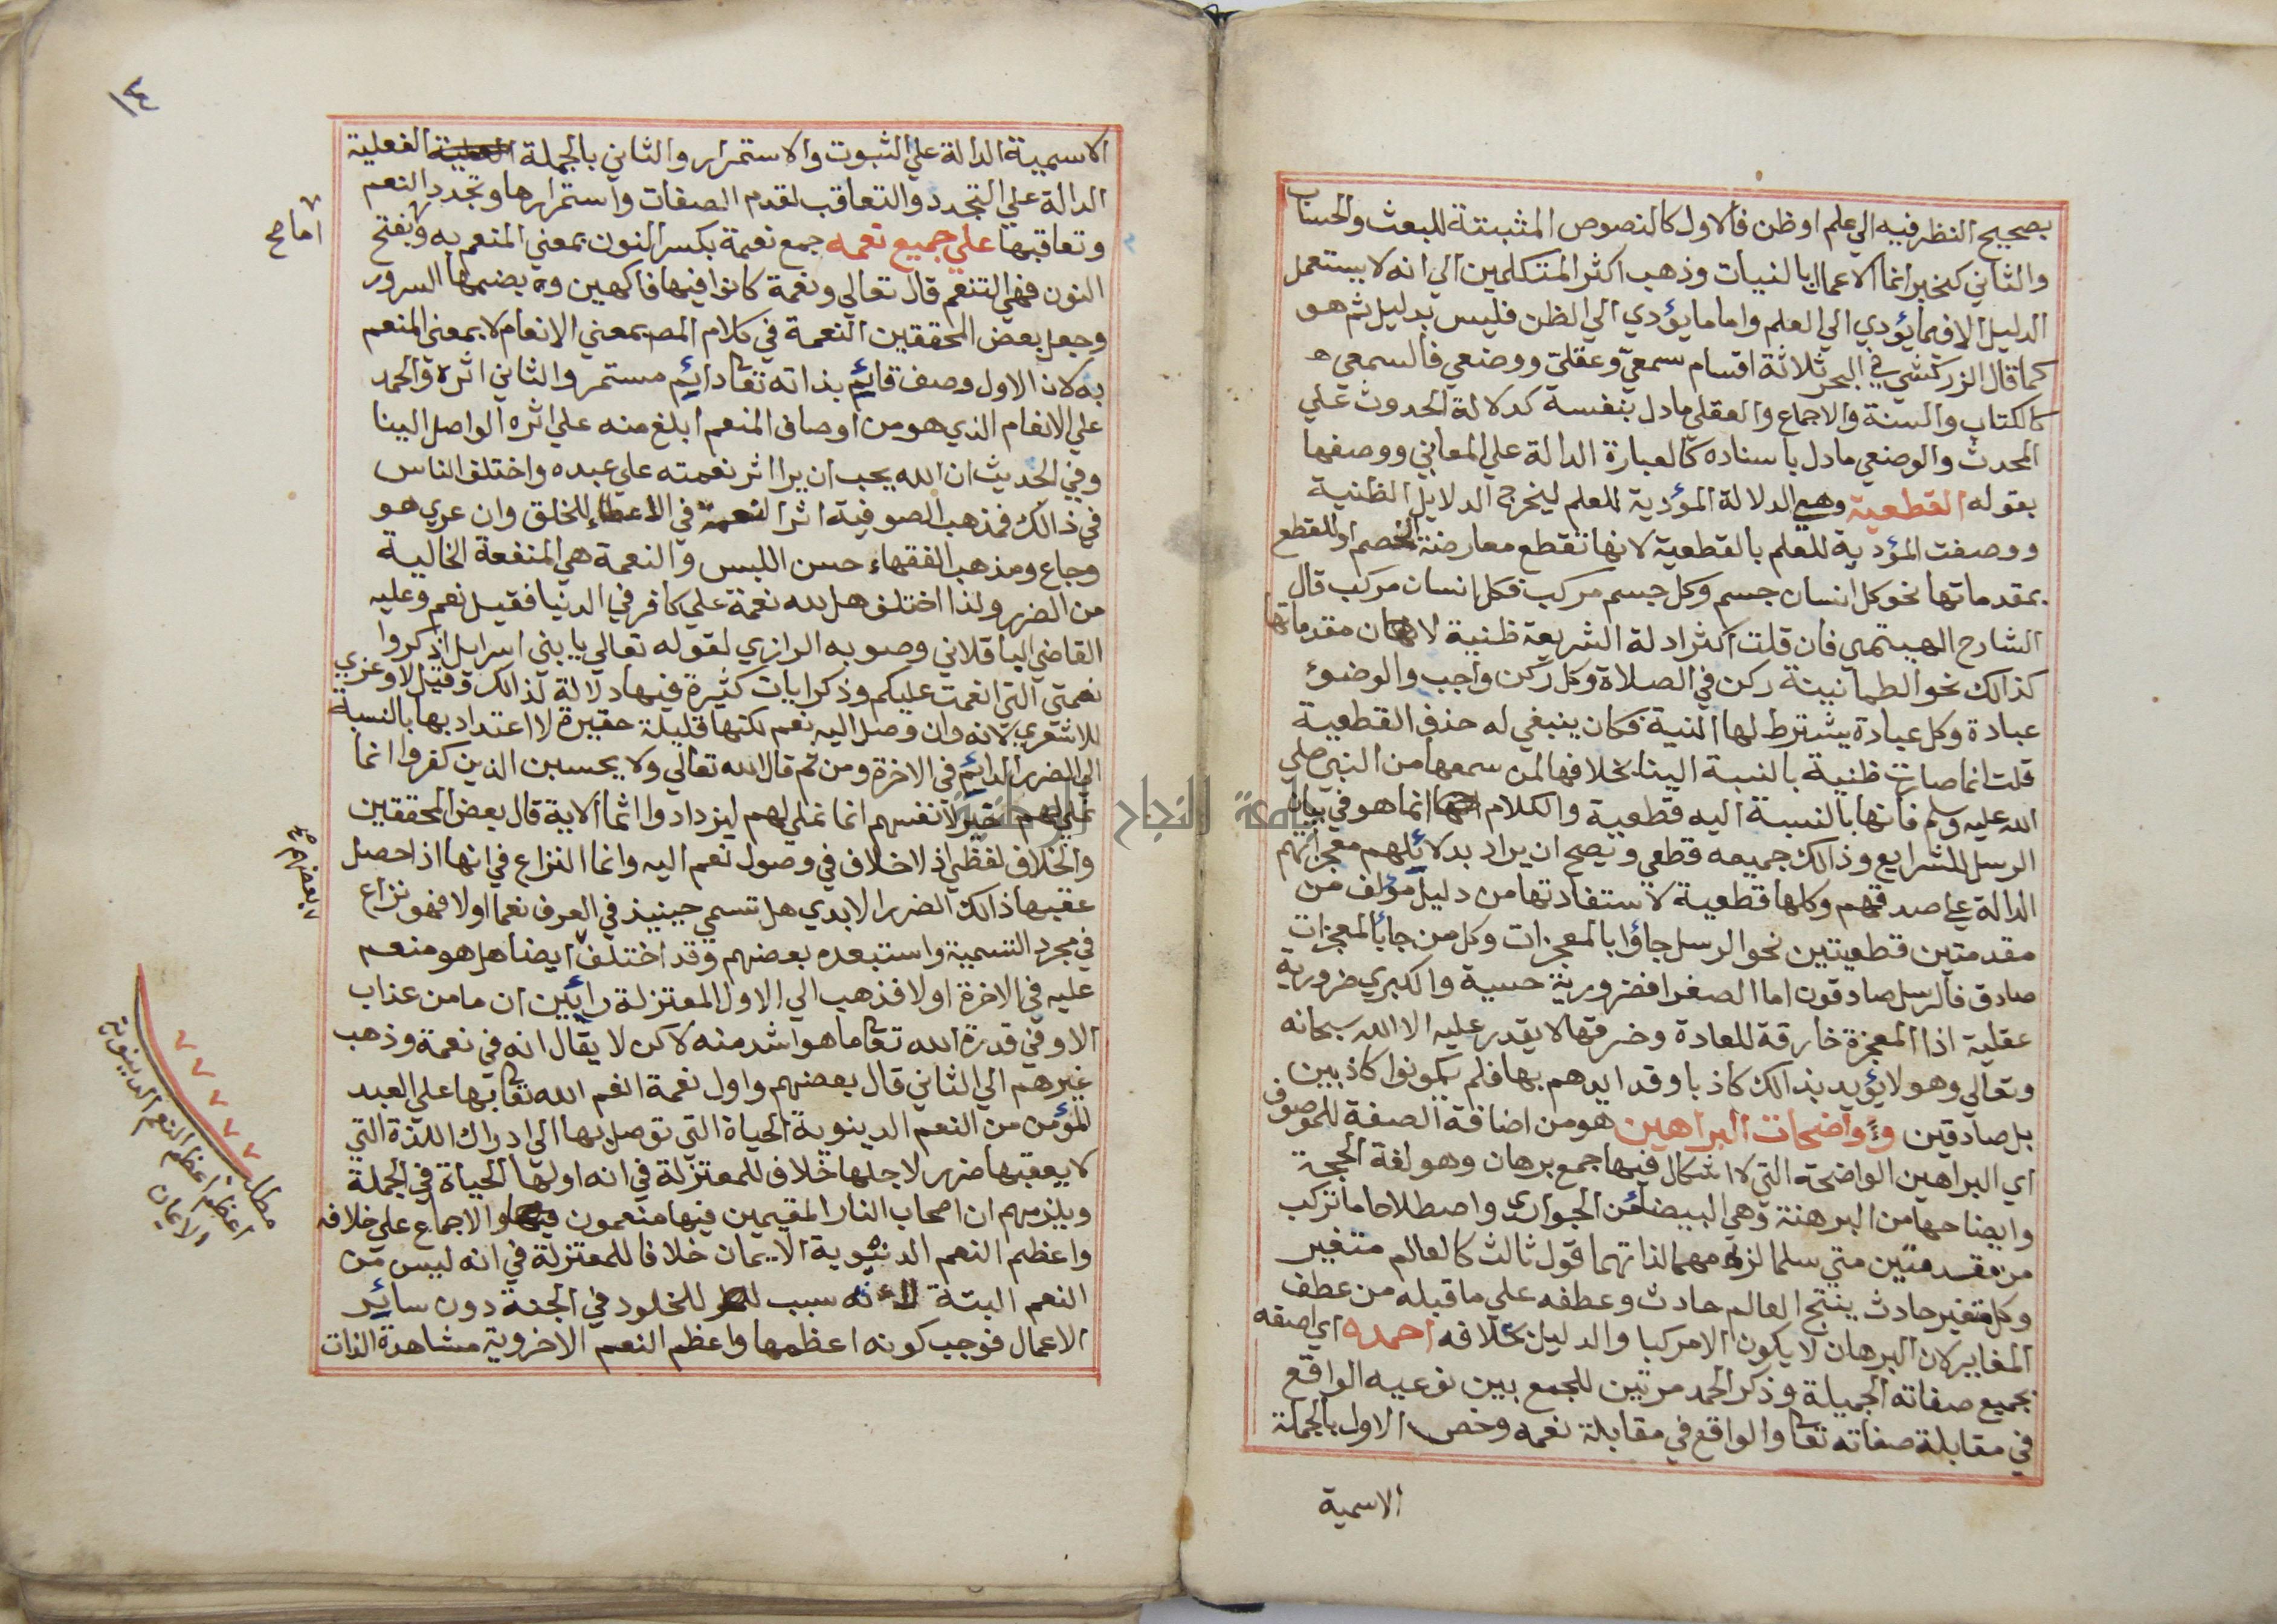 بصحيح النظر فيه الي علم او ظن فالاول كالنصوص المثبتة للبعث والحساب
والثاني كخبر انما الاعمال بالنيات وذهب اكثر المتكلمين الي انه لا يستعمل
الدليل الا فيما يؤدي الي العلم واما ما يؤدي الي الظن فليس بدليل ثم هو
كما قال الزركشي في البحر ثلاثة اقسام سمعي وعقلي ووضعي فالسمعي
كالكتاب والسنة والاجماع والعقلي ما دل بنفسه كدلالة الحدوث علي
المحدث والوضعي ما دل باسناده كالعبارة الدالة علي المعاني ووصفها
بقوله القطعية وهي الدلالة المؤدية للعلم ليخرج الدلايل الظنية
ووصفت المؤدية للعلم بالقطعية لانها تقطع معارضة الخصم او للقطع
بمقدماتها نحو كل انسان جسم وكل جسم مركب فكل انسان مركب قال
الشارح الهيتمي فان قلت اكثر ادلة الشريعة ظنية لان مقدماتها
كذالك نحو الطمانينة ركن في الصلاة وكل ركن واجب والوضوء
عبادة وكل عبادة يشترط لها النية فكان ينبغي له حذف القطعية
قلت انما صارت ظنية بالنسبة الينا بخلافها لمن سمعها من النبي صلي
الله عليه وسلم فانها بالنسبة اليه قطعية والكلام انما هو في بيان
الرسل للشرايع وذالك جميعه قطعي ويصح ان يراد بدلائلهم معجزاتهم
الدالة علي صدقهم وكلها قطعية لاستفادتها من دليل مؤلف من
مقدمتين قطعيتين نحو الرسل جاؤا بالمعجزات وكل من جا بالمعجزات
صادق فالرسل صادقون اما الصغرا فضرورية حسية والكبري ضرورية
عقلية اذا المعجزة خارقة للعادة وخرقها لا يقدر عليه الا الله سبحانه
وتعالي وهو لا يؤيد بذالك كاذبا وقد ايدهم بها فلم يكونوا كاذبين
بل صادقين و واضحات البراهين هو من اضافة الصفة للموصوف
اي البراهين الواضحة التي لا اشكال فيها جمع برهان وهو لغة الحجة
وايضاحها من البرهنة وهي البيضا من الجواري واصطلاحا ما تركب
من مقدمتين متي سلما لزمهما لذاتهما قول ثالث كالعالم متغير
وكل متغير حادث ينتج العالم حادث وعطفه علي ما قبله من عطف
المغاير لان البرهان لا يكون الا مركبا والدليل بخلافه احمده اي اصفه
بجميع صفاته الجميلة وذكر الحمد مرتين للجمع بين نوعيه الواقع
في مقابلة صفاته تعا والواقع في مقابلة نعمه وخص الاول بالجملة
الاسمية
١٤
الاسمية الدالة علي الثبوت والاستمرار والثاني بالجملة الفعلية
الدالة علي التجدد والتعاقب لقدم الصفات واستمرارها وتجدد النعم
وتعاقبها علي جميع نعمه جمع نعمة بكسر النون بمعني المنعم به وبفتح
اما صح
النون فهي التنعم قال تعالي ونعمة كانوا فيها فاكهين وبضمها السرور
وجعل بعض المحققين النعمة في كلام المص بمعني الانعام لا بمعني المنعم
به لان الاول وصف قائم بذاته تعا دائم مستمر والثاني اثره والحمد
علي الانعام الذي هو من اوصاف المنعم ابلغ منه علي اثره الواصل الينا
وفي الحديث ان الله يحب ان يرا اثر نعمته علي عبده واختلف الناس
في ذالك فمذهب الصوفية اثر النعمة في الاعطاء للخلق وان عري هو
وجاع ومذهب الفقهاء حسن اللبس والنعمة هي المنفعة الخالية
من الضرر ولذا اختلف هل لله نعمة علي كافر في الدنيا فقيل نعم وعليه
القاضي الباقلاني وصوبه الرازي لقوله تعالي يا بني اسرايل اذكروا
نعمتي التي انعمت عليكم وذكر ايات كثيرة فيها دلالة لذالك وقيل لا وعزي
للاشعري لانه وان وصل اليه نعم لكنها قليلة حقيرة لا اعتداد بها بالنسبة
الي الضرر الدائم في الاخرة ومن ثم قال الله تعالي ولا يحسبن الذين كفروا انما
نملي لهم خير لانفسهم انما نملي لهم ليزدادوا اثما الاية قال بعض المحققين
والخلاف لفظي اذ لا خلاف في وصول نعم اليه وانما النزاع في انها اذا حصل
عقبها ذالك الضرر الابدي هل تسمي حينيذ في العرف نعما اولا فهو نزاع
في مجرد التسمية واستبعده بعضهم وقد اختلف ايضا هل هو منعم
عليه في الاخرة اولا فذهب الي الاول المعتزلة رائين ان ما من عذاب
الا وفي قدرة الله تعا ما هو اشد منه لاكن لا يقال انه في نعمة وذهب
غيرهم الي الثاني قال بعضهم واول نعمة انعم الله تعا بها علي العبد
المؤمن من النعم الدينوية الحياة التي توصل بها الي ادراك اللذة التي
لا يعقبها ضرر لاجلها خلاف للمعتزلة في انه اولها الحياة في الجملة
ويلزمهم ان اصحاب النار المقيمين فيها منعمون والاجماع علي خلافه
واعظم النعم الدنيوية الايمان خلافا للمعتزلة في انه ليس من
النعم البتة لانه سبب للخلود في الجنة دون سائر
الاعمال فوجب كونه اعظمها واعظم النعم الاخروية مشاهدة الذات
مطلب
اعظم اعظم النعم الدينوية
الايمان
جامعة النجاح الوطنية